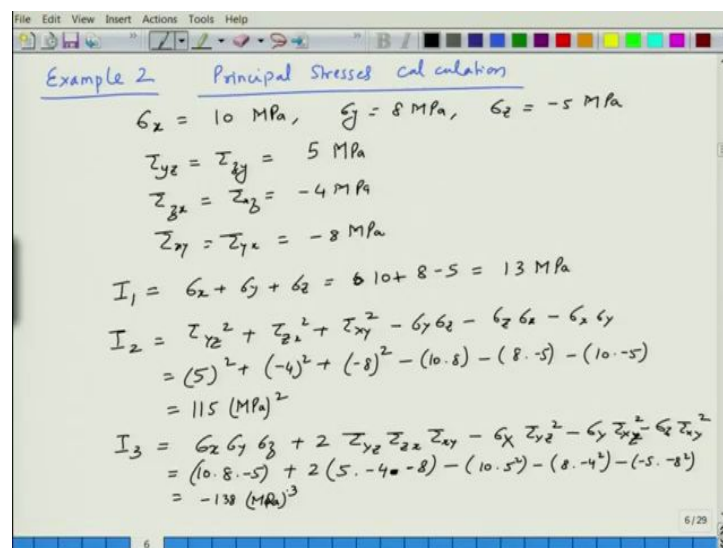 File Edit View Insert Actions Tools Help
Example 2 Principal Stresses calculation
σx = 10 MPa, σy = 8 MPa, σz = -5 MPa
τyz = τzy = 5 MPa
τzx = τxz = -4 MPa
τxy = τyx = -8 MPa
I₁ = σx + σy + σz = 10 + 8 - 5 = 13 MPa
I₂ = τyz² + τzx² + τxy² - σyσz - σzσx - σxσy
= (5)² + (-4)² + (-8)² - (10.8) - (8.-5) - (10.-5)
= 115 (MPa)²
I₃ = σxσyσz + 2 τyz τzx τxy - σx τyz² - σy τxz² - σz τxy²
= (10.8.-5) + 2(5.-4.-8) - (10.5²) - (8.-4²) - (-5.-8²)
= -138 (MPa)³
6/29
6